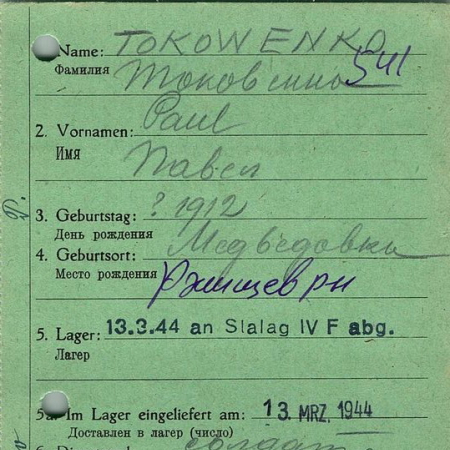 Name: TOKOWENKO
Фамилия Токовенко 541
2. Vornamen: Paul
Имя Павел
3. Geburtstag: ? 1912
День рождения
4. Geburtsort: Медведовка
Место рождения
5. Lager: 13.3.44 an Stalag IV F abg.
Лагерь
5a. Im Lager eingeliefert am: 13. MRZ. 1944
Доставлен в лагерь (число)
солдат